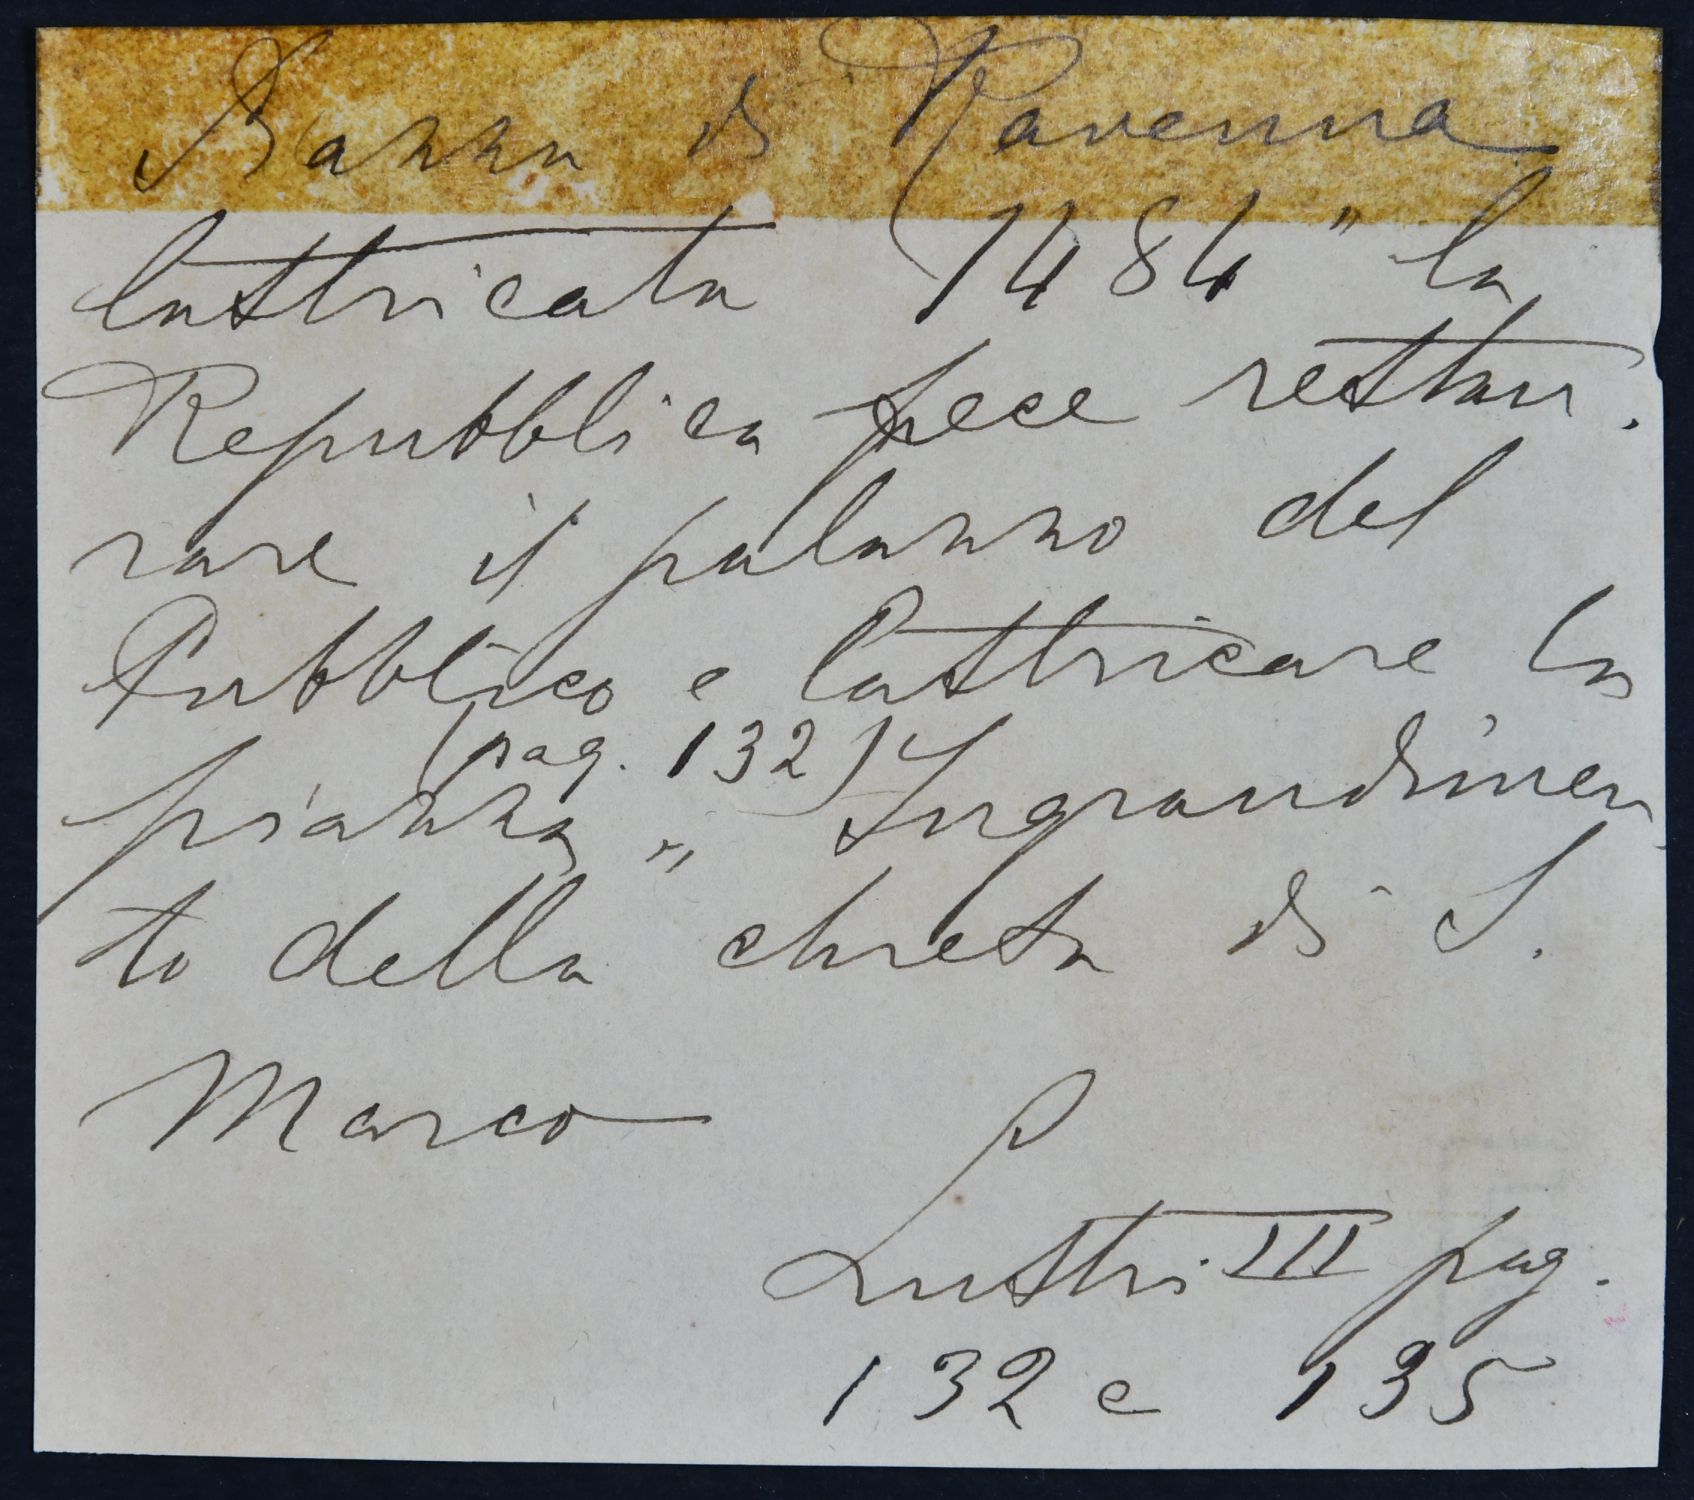 Piazza di Ravenna
lastricata 1484 " la
Repubblica fece restau.
rare il palazzo del
Pubblico e lastricare la
(pag. 132)
piazza „ Ingrandimen
to della chiesa di S.
Marco
Lustri III pag.
132 e 135